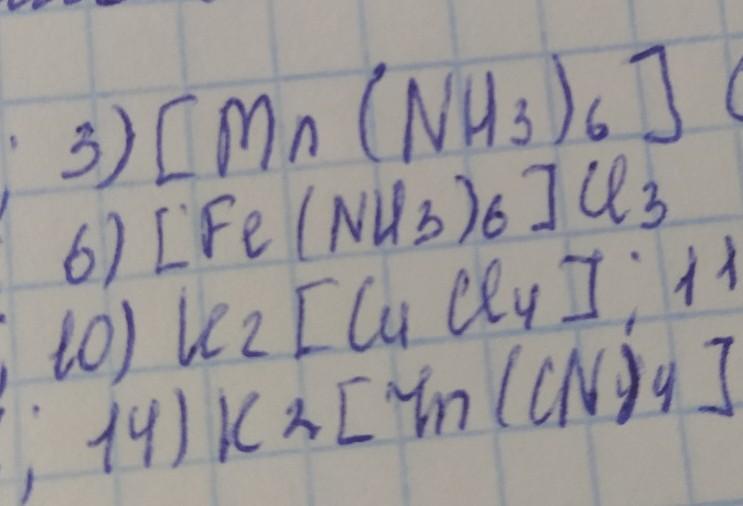 ; 3) [Mn(NH3)6] (
6) [Fe(NH3)6]Cl3
10) K2[CuCl4]; 11
; 14) K2[Zn(CN)4]